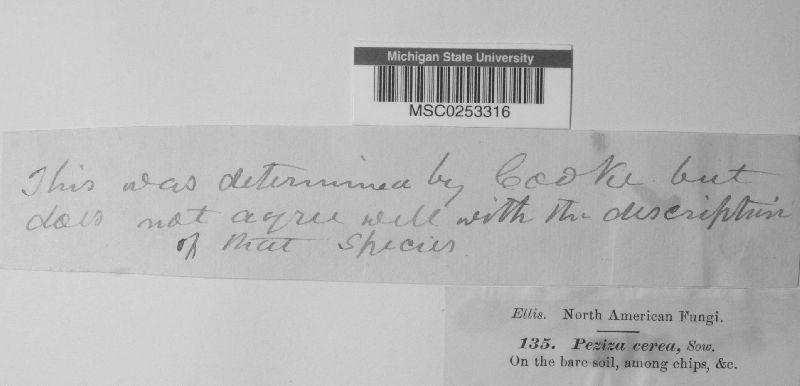 Michigan State University
MSC0253316
This was determined by Cooke but
does not agree well with the description
of that Species
Ellis. North American Fungi.
135. Peziza cerea, Sow.
On the bare soil, among chips, &c.